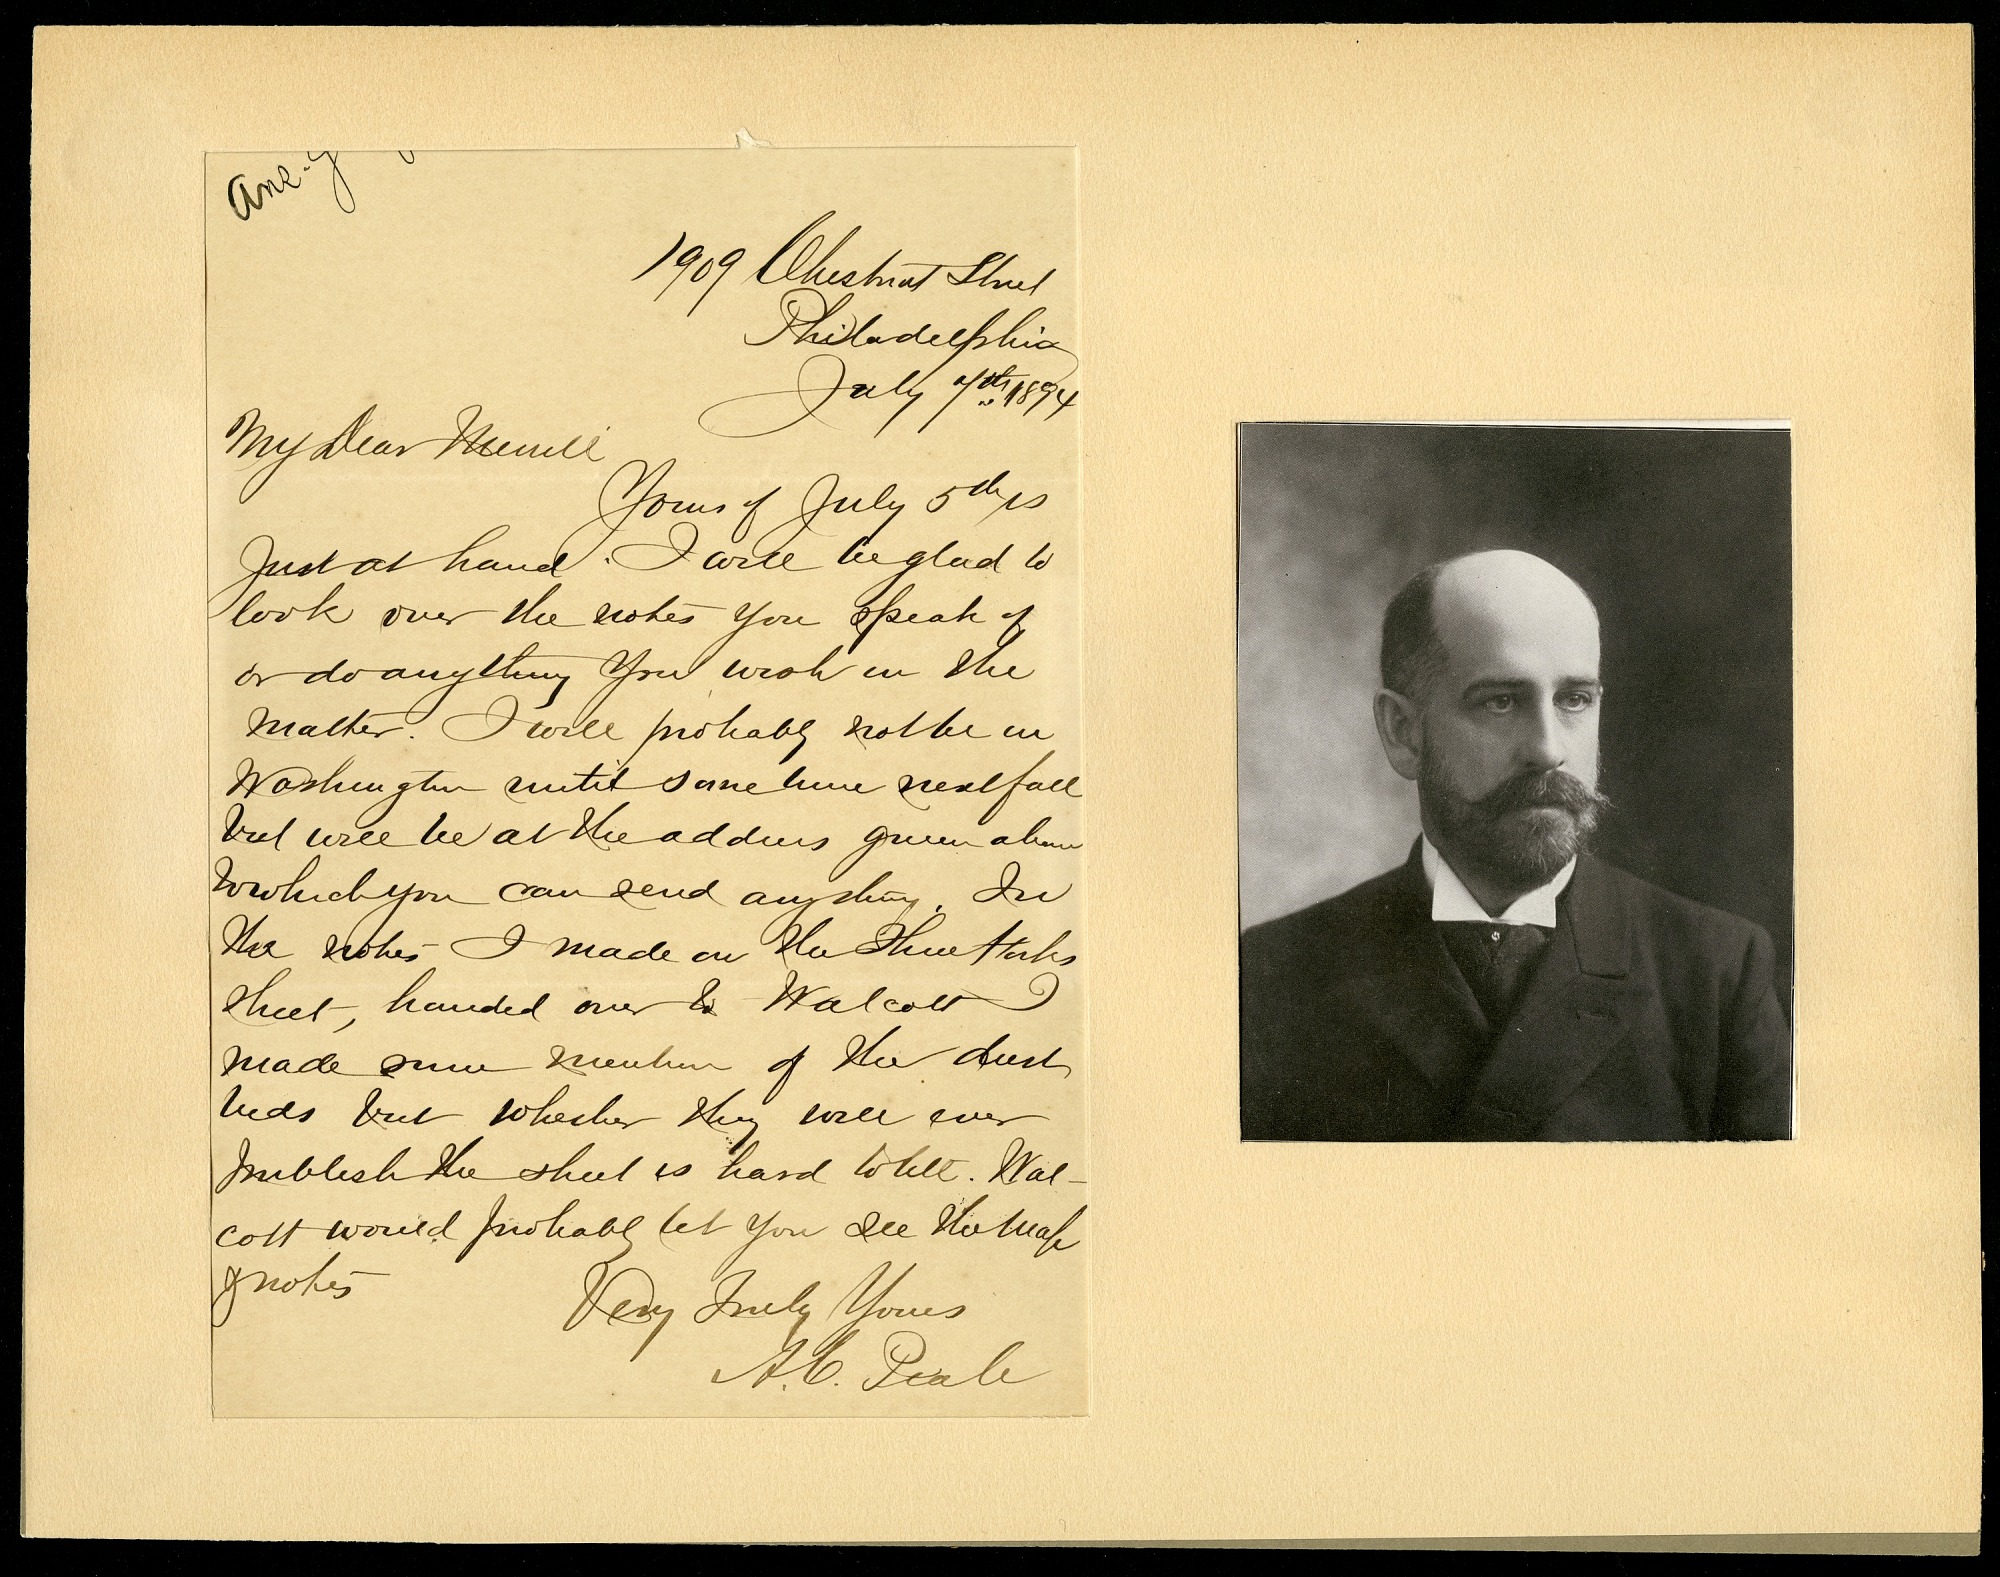 Ans.
1909 Chestnut Street
Philadelphia
July 7th 1894
My Dear Merrill
Yours of July 5th is
just at hand. I will be glad to
look over the notes you speak of
or do anything you wish in the
matter. I will probably not be in
Washington until some time next fall
but will be at the address given above
to which you can send anything. In
the notes I made on the Three Forks
sheet, handed over to Walcott I
made some mention of the dust
beds but whether they will ever
publish the sheet is hard to tell. Wal-
cott would probably let you see the map
& notes
Very Truly Yours
A.C. Peale